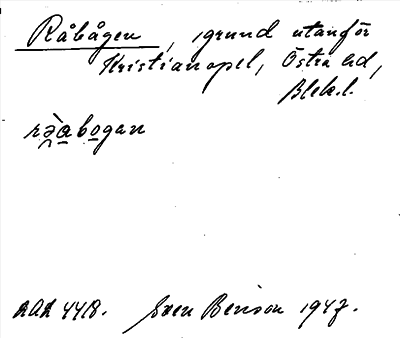 Råbågen, grund utanför
Kristianopel, Östra hd,
Blek. l.
rə̀abogan
4418. Sven Benson 1947.